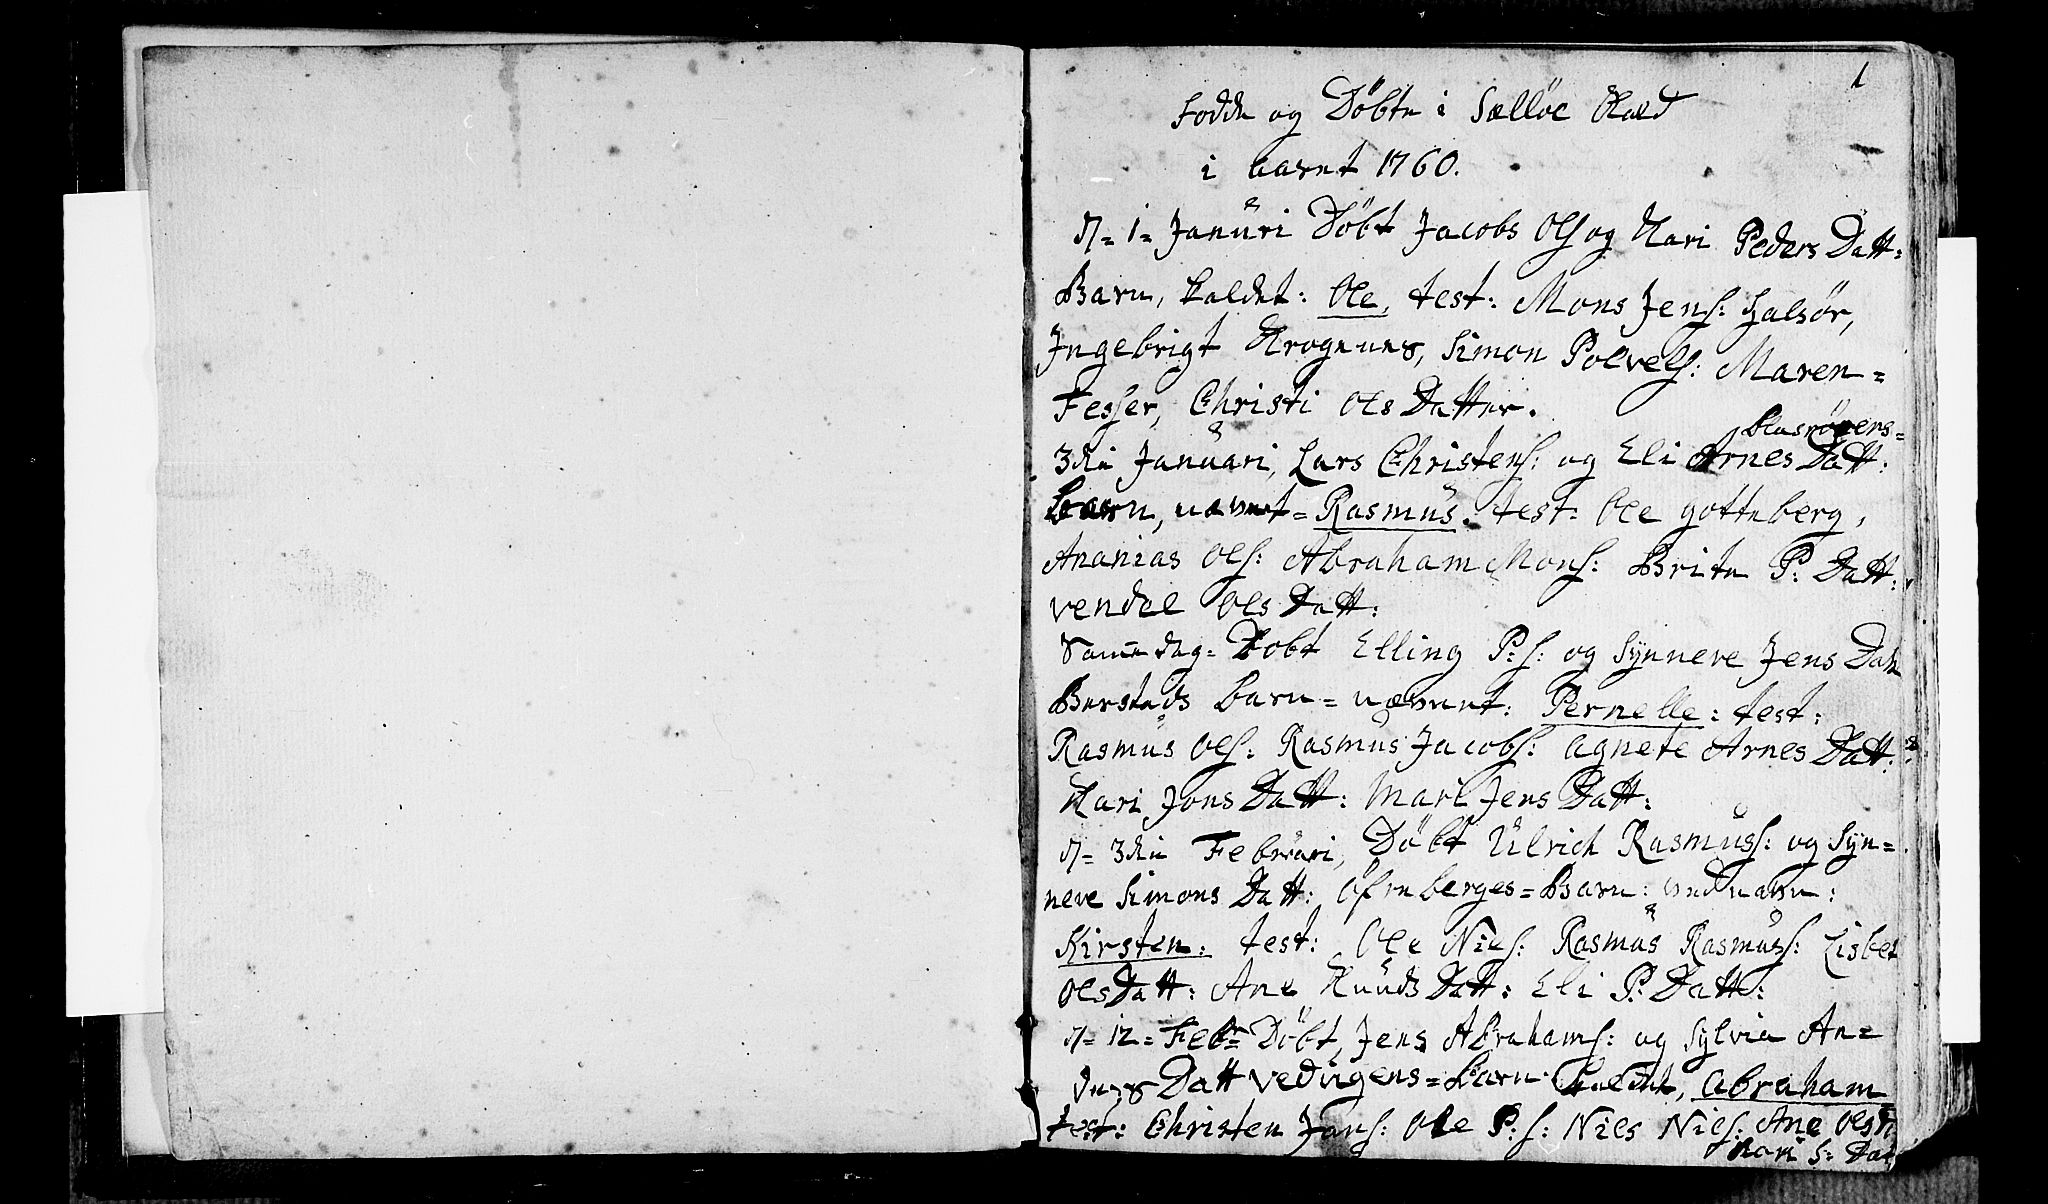 1
Fødde og Döbte i Sælløe Kald
i aaret 1760.
d: 1= Januri Döbt Jacobs Ols og Kari Peders Datt:
Barn, kaldet: Ole, test: Mons Jens: Halsör,
Ingebrigt Krognnes, Simon Polvels: Maren=
Fesser, Christi Ols Datter.
3die Januari, Lars Christens: og Eli Arnes Datt:
Barn, nævnt= Rasmus. test: Ole gotteberg,
Ananias Ols: Abraham Mons: Brite P: Datt:
vendel Ols Datt:
Samme dag= Dobt Elling P: s: og Synneve Jens Datt
Barstads barn= nævnet: Pernelle: test:
Rasmus Ols: Rasmus Jacobs: Agnete Arnes Datt:
Kari Jons Datt: Mari Jens Datt:
d= 3die Februari, Döbt Ulrich Rasmuss: og Syn=
neve Simons Datt: Öfreberges= Barn: ved navn:
Kirsten: test: Ole Niels: Rasmus Rasmuss: Lisbet
Ols Datt: Ane Knuds Datt: Eli P: Datt:
d= 12= Febr= Döbt, Jens Abrahams: og Sylvia An=
ders Datt vedvigens= Barn kaldet, Abraham
test: Christen Jans: Ole P: s: Niels Niels: Ane Ols
Kari S: Dat